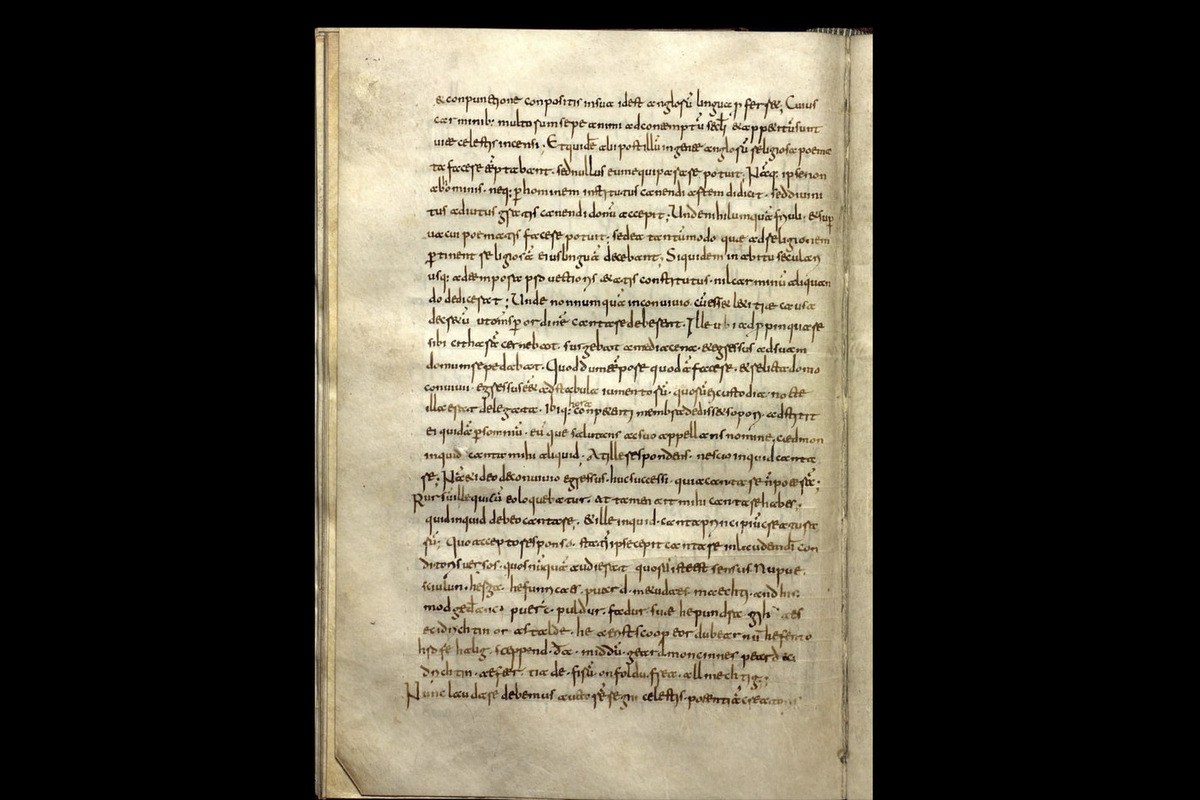 & conpunctione conpositis in sua id est anglosū lingua proferr&; Cuius
carminib; multorum sepe animi ad contemptū sęcłi & app&itū sunt
uitae celestis incensi · Et quidē alii post illū in gente anglorū religiosa poema
ta facere tēptabant · sed nullus eum equiparare potuit; Nāq; ipse non
ab hominib; · neq; ꝑ hominem institutus canendi artem didicit · sed diuini
tus adiutus gratis canendi donū accepit; Unde nihil umquā friuoli · & sup
uacui poematis facere potuit · sed ea tantūmodo quae ad religionem
ꝑtinent religiosā eius linguā decebant; Siquidem in habitu seculari
usq; ad tempora prouectioris aetatis constitutus · nil carminū aliquan
do didicerat; Unde nonnumquā in conuiuio cū ess& laetitiae causa
decretū ut om̄s ꝑ ordinē cantare deberent · Ille ubi adpropinquare
sibi citharā cernebat · surgebat a media cena · & egressus ad suam
domum repedabat · Quod dum tēpore quodā facer& · & relicta domo
conuiuii · egressus eēt ad stabula iumentorū · quorū ei custodia nocte
illa erat delegata · Ibiq; hora conpetenti membra dedisset sopori · adstitit
ei quidā ꝑ somniū · eū que salutans ac suo appellans nomine, caedmon
inquid canta mihi aliquid · At ille respondens · nescio inquid canta
re; Nā & ideo de conuiuio egressus · huc successi · quia cantare n̄ poterā;
Rursū ille qui cū eo loquebatur · at tamen ait mihi cantare habes ·
quid inquid debeo cantare · & ille inquid · canta principiū creatura
rū; Quo accepto responso · statī ipse cepit cantare in laudem dī con
ditoris uersos · quos nūquā audierat quorū iste est sensus Nu pue
sciulun · herga · hefunricaes · puard · metudaes maechti · and his
modgedanc · puerc · puldur · fadur · suae he pundra gihuaes
eci drichtin or astalde · he aerist scoop eordu bearnū hefen to
hrofe halig sceppend · da · middū · geard moncinnes peard eci
drichtin · aefter tiadę · firū · on foldu · frea · allmechtig;
Nunc laudare debemus auctorē regni celestis · potentiā creatoris